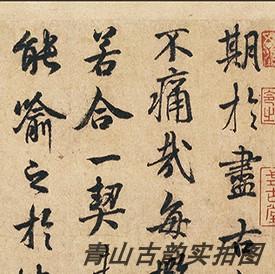 期於盡古
不痛哉每
若合一契
能喻之於
青山古韵实拍图